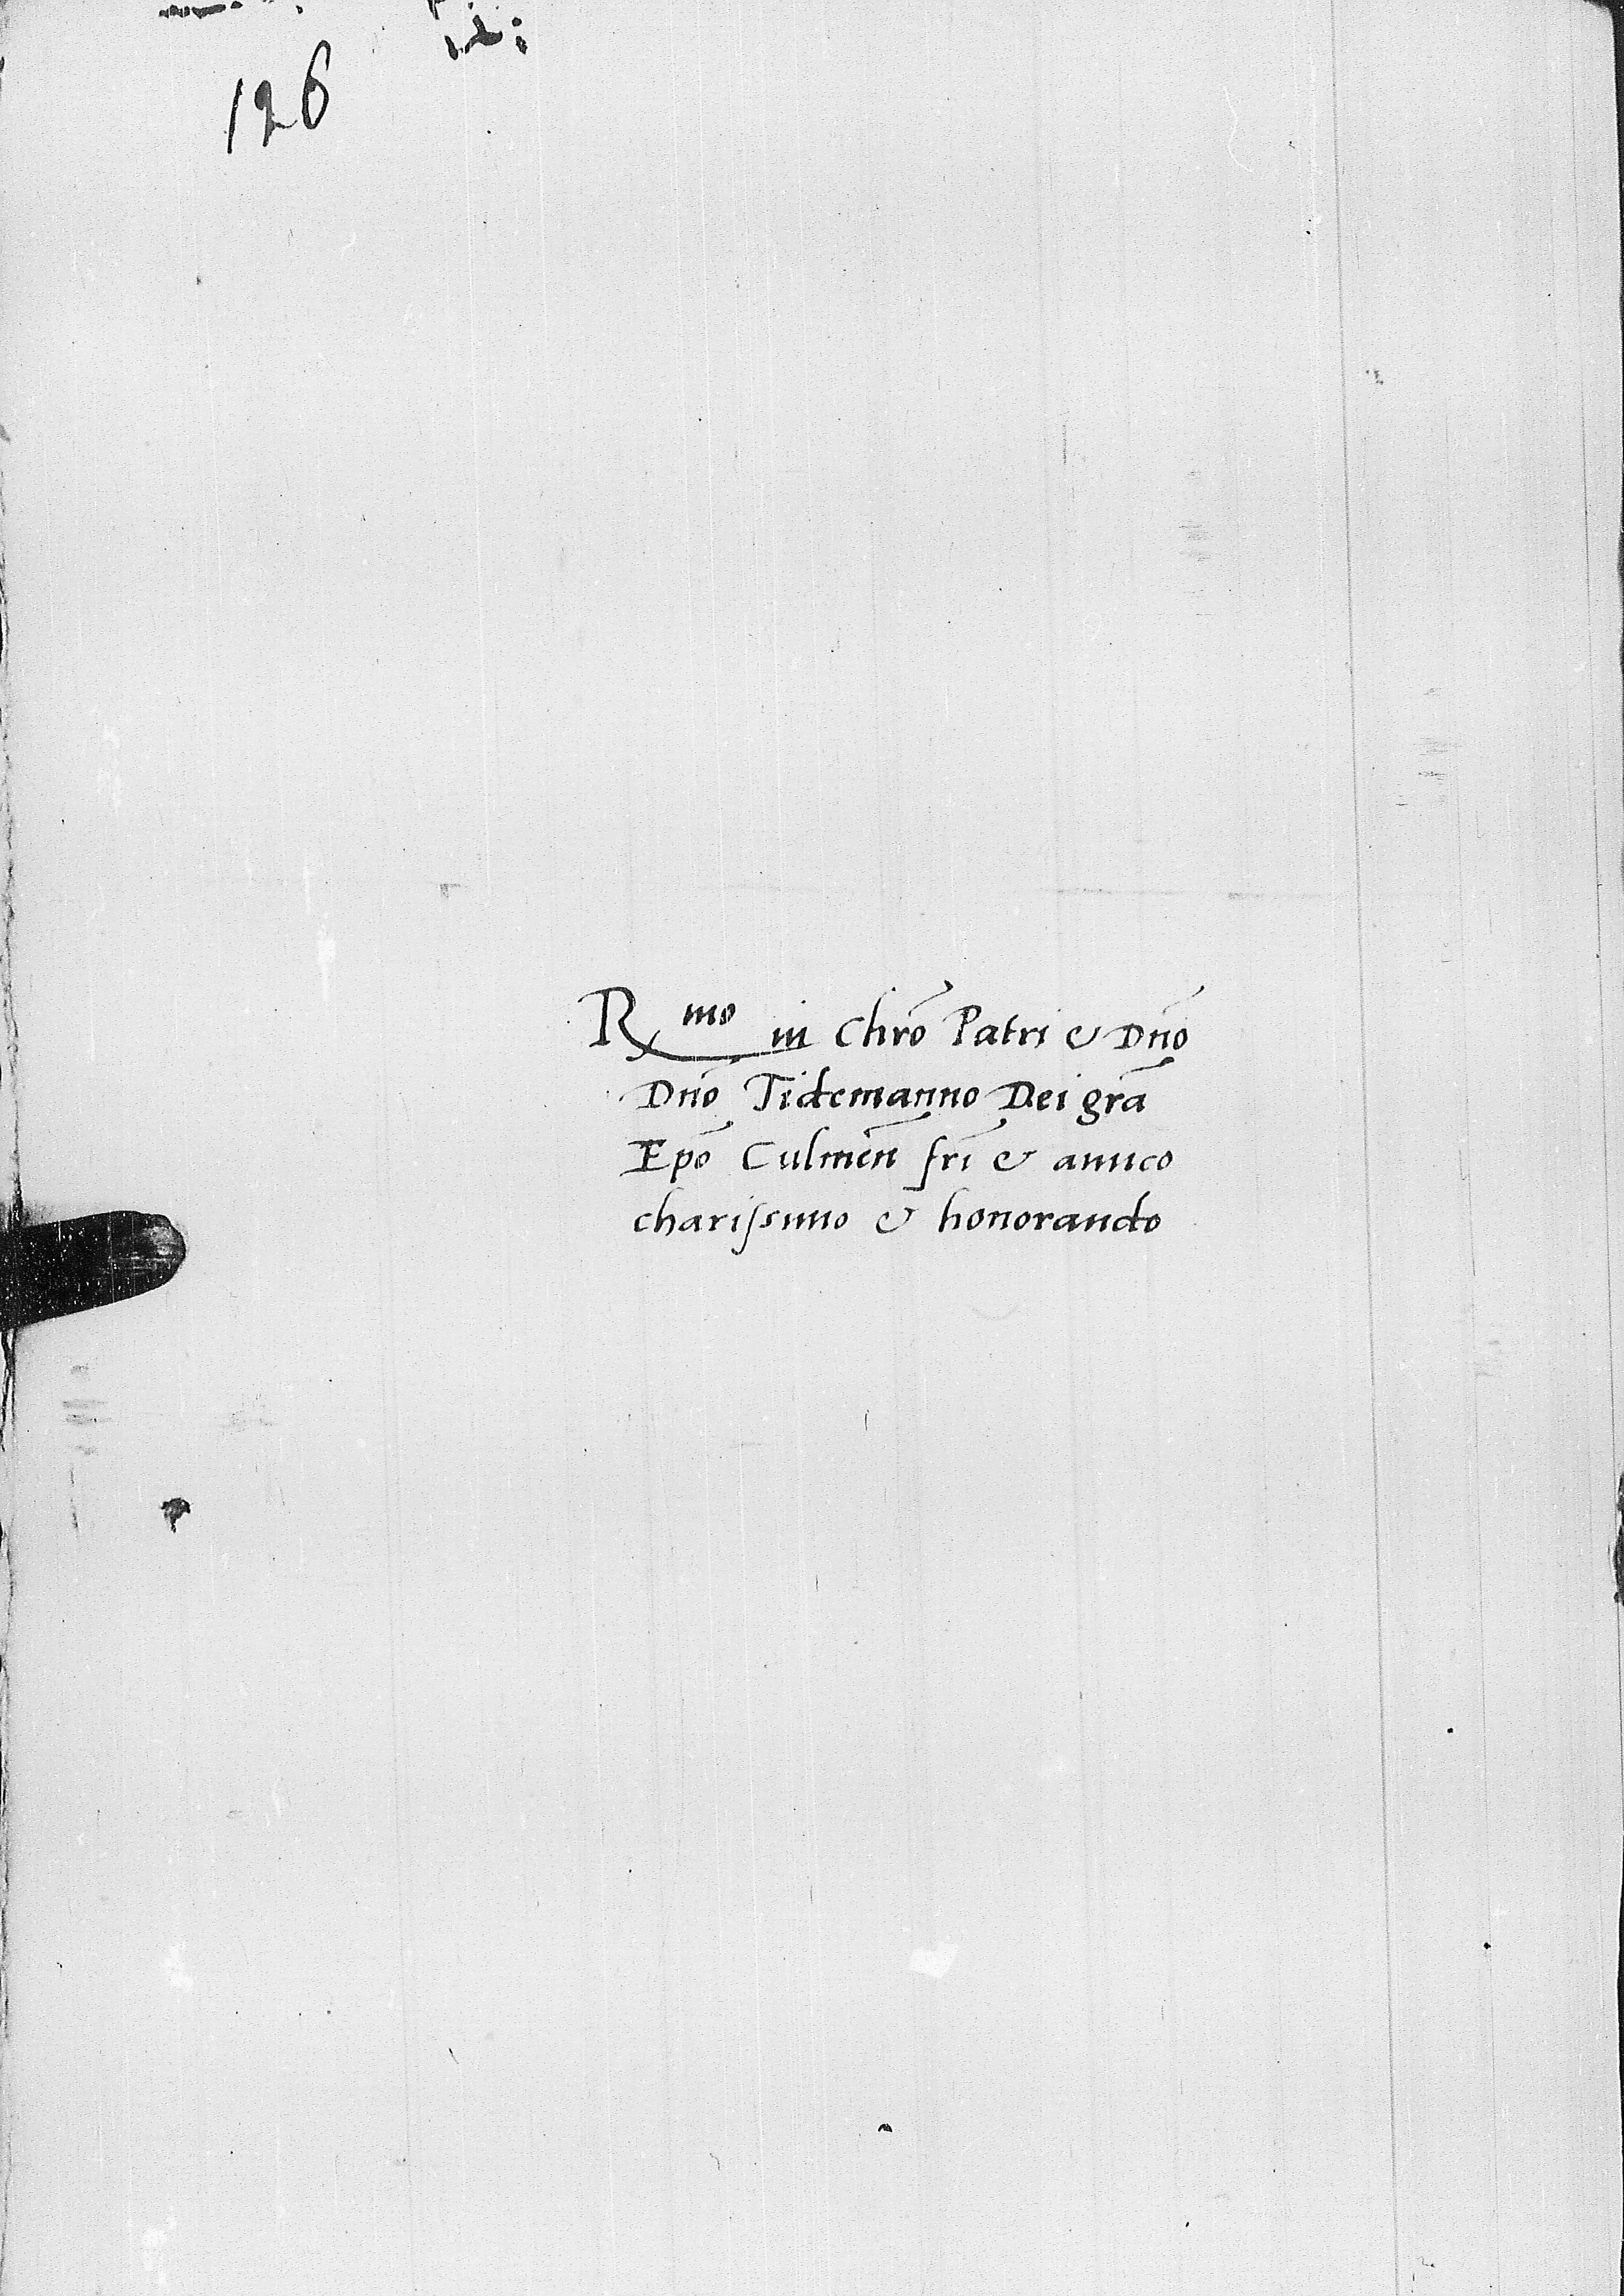 126
R^mo in Chr̄o Patri & Dn̄o
Dn̄o Tidemanno Dei gr̄a
Ep̄o Culmen̄ fr̄i & amico
charissimo & honorando